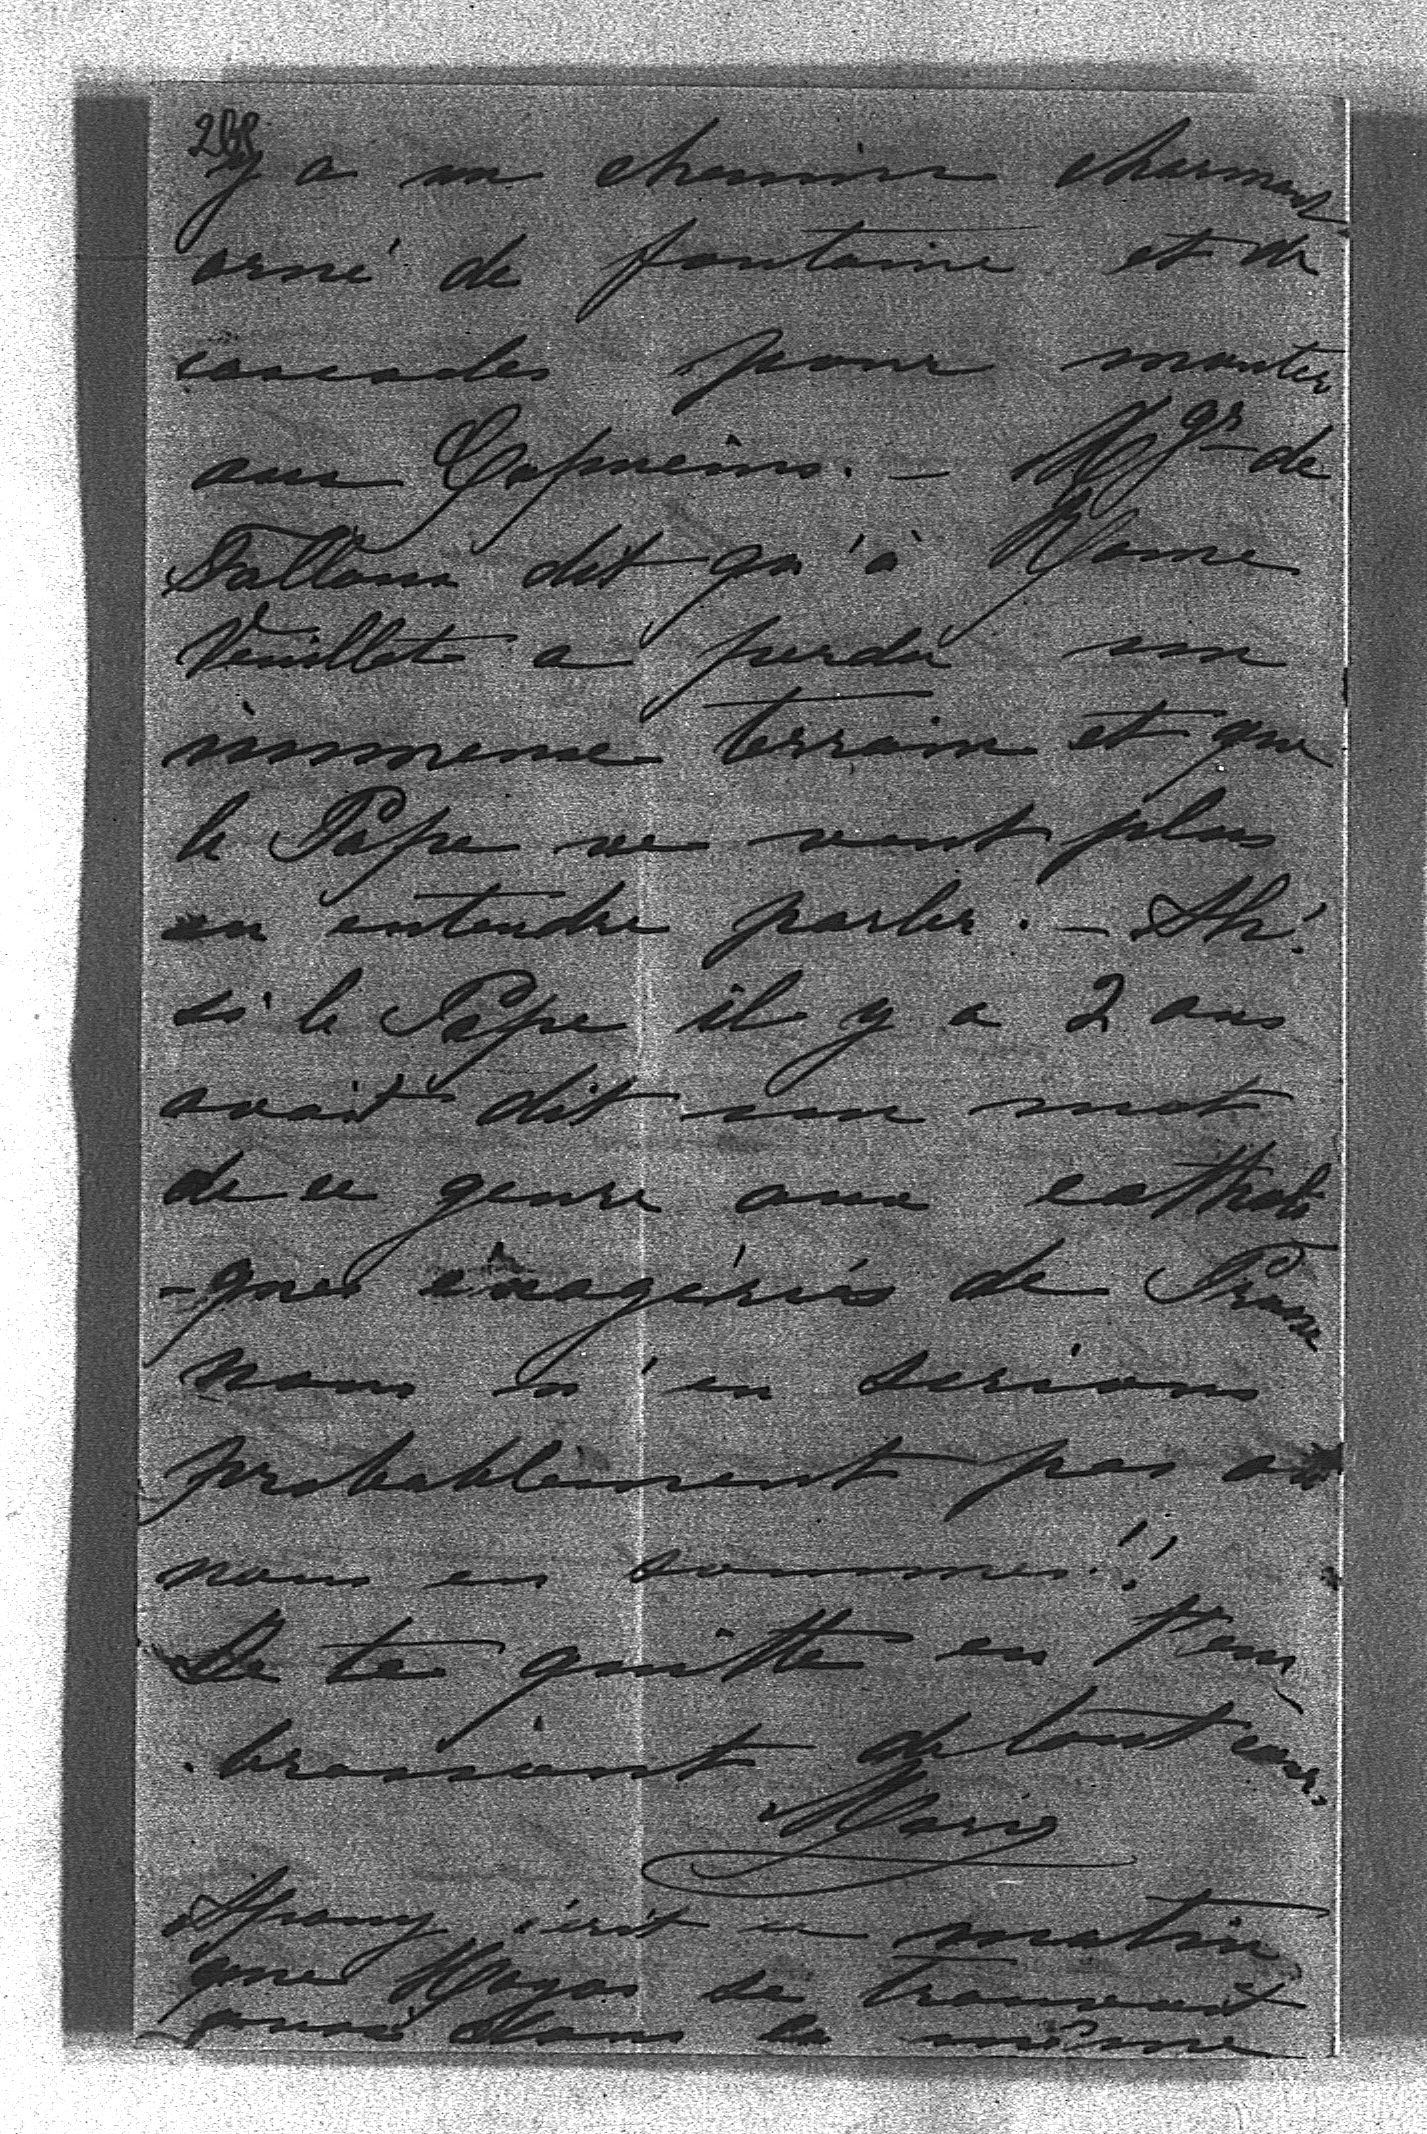 y a un chemin charmant
orné de fontaine et de
cascades pour monter
aux Capucins. – Mgr de
Falloux dit qu'à Rome
Veuillot a perdu un
immense terrain et que
le Pape ne veut plus
en entendre parler. – Ah!
si le Pape il y a 2 ans
avait dit un mot
de ce genre aux catholi
-ques exagérés de France
nous n'en serions
probablement pas où
nous en sommes!!
Je te quitte en t'em
brassant de tout cœur.
Marie
Apony écrit ce matin
que Hoyos se trouvait
dans la même